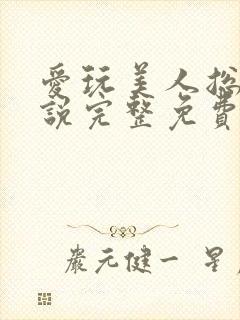 愛玩美人
說完整免費
嚴元健一 星